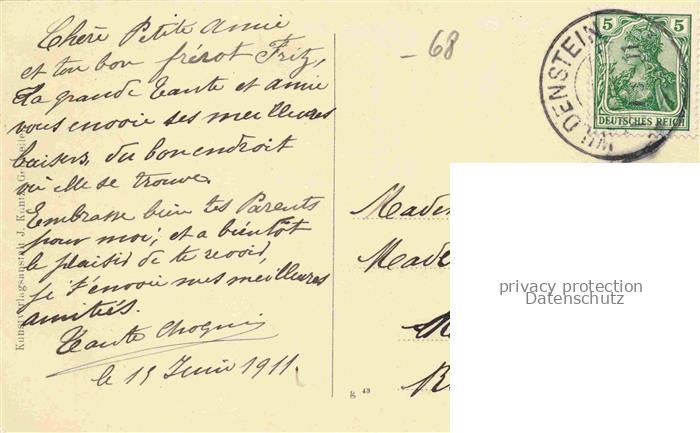 Chère Petite Amie
et ton bon frérot Fritz,
La grande Tante et amie
vous envoie ses meilleures
baisers, du bon endroit
où elle se trouve.
Embrasse bien tes Parents
pour moi; et a bientôt
le plaisir de te revoir,
je t'envoie mes meilleures
amitiés.
Tante
le 15 Juin 1911.
Kunstverlagsanstalt J.
- 68
5 5
DEUTSCHES REICH
WILDENSTEIN
privacy protection
Datenschutz
g 43